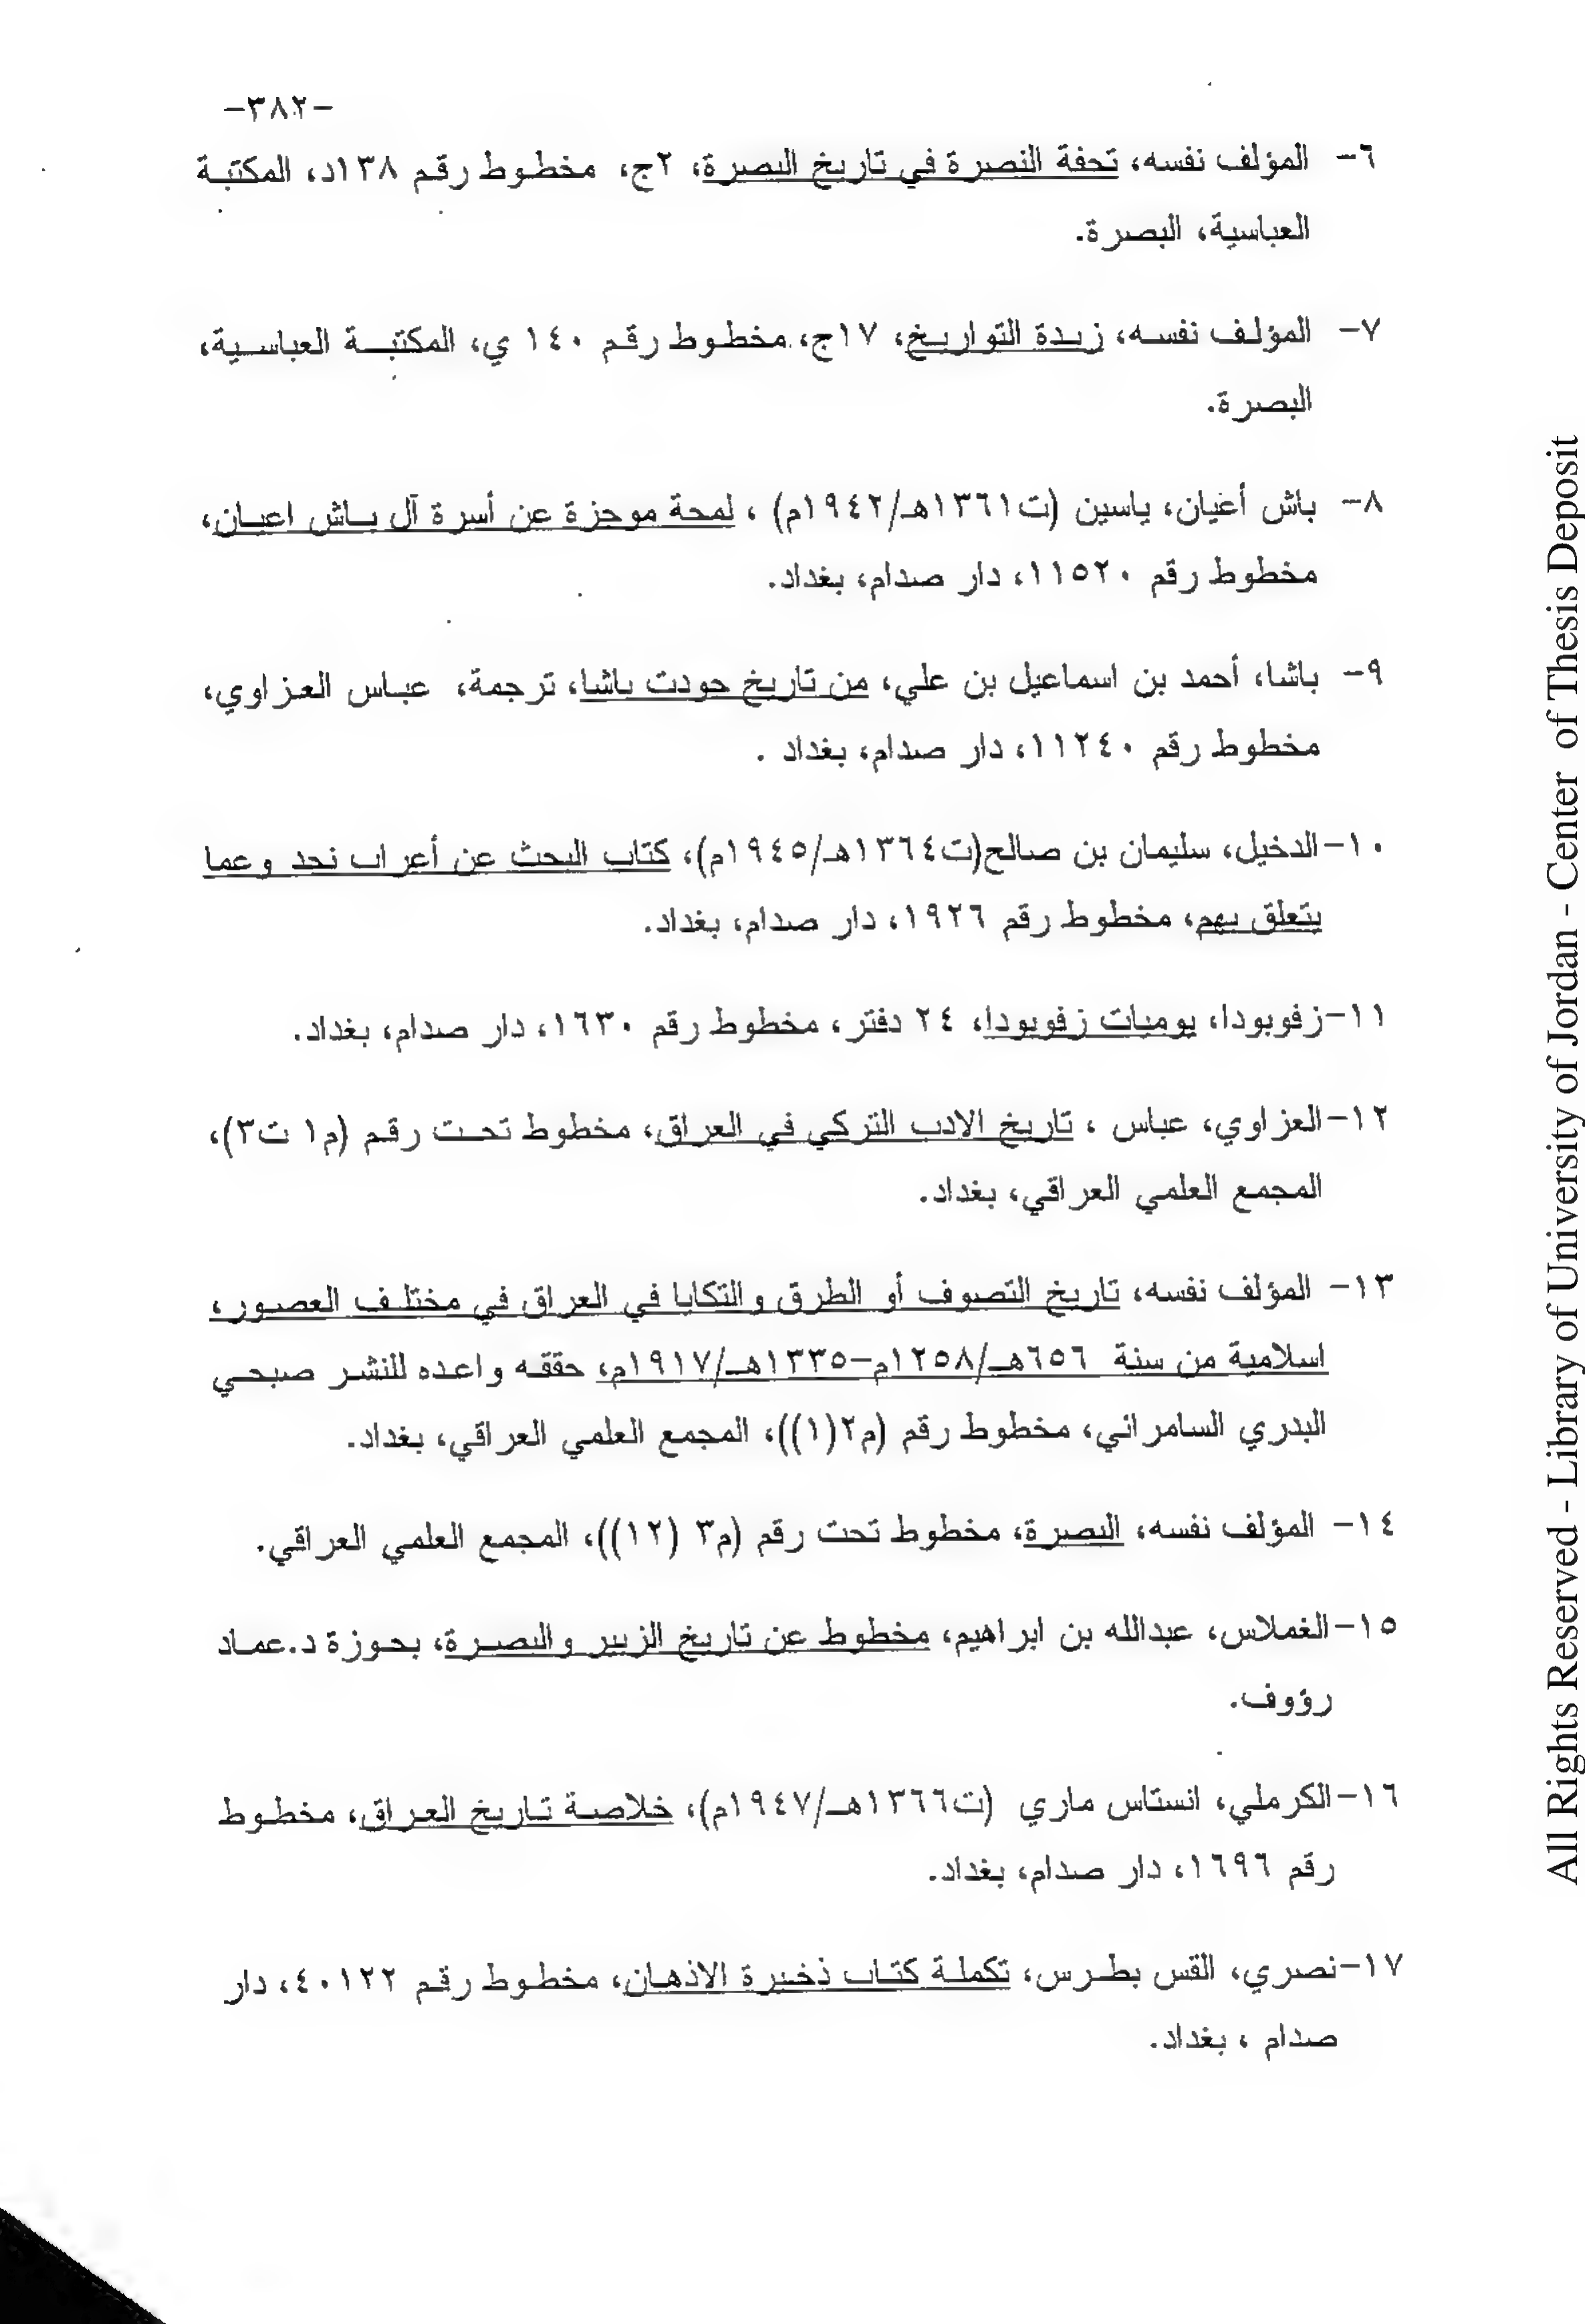 -٣٨٢-
٦- المؤلف نفسه، تحفة النصرة في تاريخ البصرة، ٢ج، مخطوط رقم ١٣٨د، المكتبة
العباسية، البصرة.
٧- المؤلف نفسه، زبدة التواريخ، ١٧ج، مخطوط رقم ١٤٠ ي، المكتبة العباسية،
البصرة.
٨- باش أعيان، ياسين (ت١٣٦١هـ/١٩٤٢م) ، لمحة موجزة عن أسرة آل باش اعيان،
مخطوط رقم ١١٥٢٠، دار صدام، بغداد.
٩- باشا، أحمد بن اسماعيل بن علي، من تاريخ جودت باشا، ترجمة، عباس العزاوي،
مخطوط رقم ١١٢٤٠، دار صدام، بغداد .
١٠-الدخيل، سليمان بن صالح(ت١٣٦٤هـ/١٩٤٥م)، كتاب البحث عن أعراب نجد وعما
يتعلق بهم، مخطوط رقم ١٩٢٦، دار صدام، بغداد.
١١-زفوبودا، يوميات زفوبودا، ٢٤ دفتر، مخطوط رقم ١٦٣٠، دار صدام، بغداد.
١٢-العزاوي، عباس ، تاريخ الادب التركي في العراق، مخطوط تحت رقم (م١ ت٣)،
المجمع العلمي العراقي، بغداد.
١٣- المؤلف نفسه، تاريخ التصوف أو الطرق والتكايا في العراق في مختلف العصور،
اسلامية من سنة ٦٥٦هـ/١٢٥٨م-١٣٣٥هـ/١٩١٧م، حققه واعده للنشر صبحي
البدري السامرائي، مخطوط رقم (م٢(١))، المجمع العلمي العراقي، بغداد.
١٤- المؤلف نفسه، البصرة، مخطوط تحت رقم (م٣ (١٢))، المجمع العلمي العراقي.
١٥-الغملاس، عبدالله بن ابراهيم، مخطوط عن تاريخ الزبير والبصرة، بحوزة د.عماد
رؤوف.
١٦-الكرملي، انستاس ماري (ت١٣٦٦هـ/١٩٤٧م)، خلاصة تاريخ العراق، مخطوط
رقم ١٦٩٦، دار صدام، بغداد.
١٧-نصري، القس بطرس، تكملة كتاب ذخيرة الاذهان، مخطوط رقم ٤٠١٢٢، دار
صدام ، بغداد.
All Rights Reserved - Library of University of Jordan - Center of Thesis Deposit